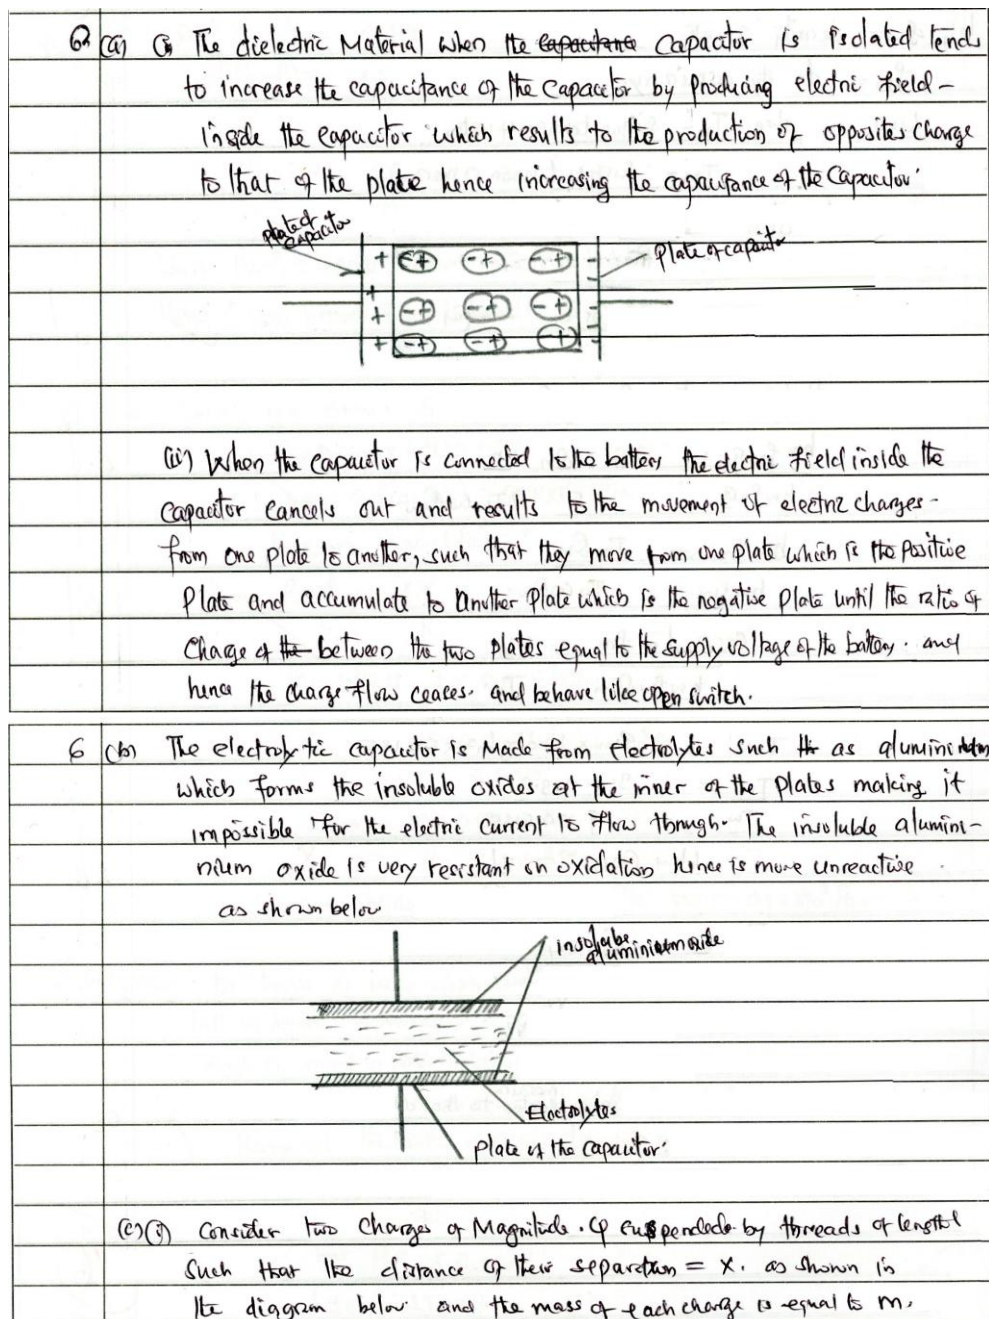 6 (a) (i) The dielectric Material when the capacitance Capacitor is isolated tends
to increase the capacitance of the capacitor by producing electric field -
inside the capacitor which results to the production of opposites charge
to that of the plate hence increasing the capacitance of the Capacitor.
plate of capacitor
plate of capacitor
+ - + - + - + -
+
+ - + - + - + -
+ - + - + - + -
(ii) When the capacitor is connected to the battery the electric field inside the
capacitor cancels out and results to the movement of electric charges -
from one plate to another, such that they move from one plate which is the positive
plate and accumulate to another plate which is the negative plate until the ratio of
charge of the between the two plates equal to the supply voltage of the battery. and
hence the charge flow ceases. and behave like open switch.
6 (b) The electrolytic capacitor is Made from electrolytes such as
which forms the insoluble oxides at the inner of the plates making it
impossible for the electric current to flow through. The insoluble alumini-
nium oxide is very resistant on oxidation hence is more unreactive
as shown below
insoluble
aluminium oxide
Electrolytes
plate of the capacitor.
(c) (i) Consider two charges of Magnitude. suspended by threads of length l
such that the distance of their separation = x. as shown in
the diagram below. and the mass of each charge is equal to m.